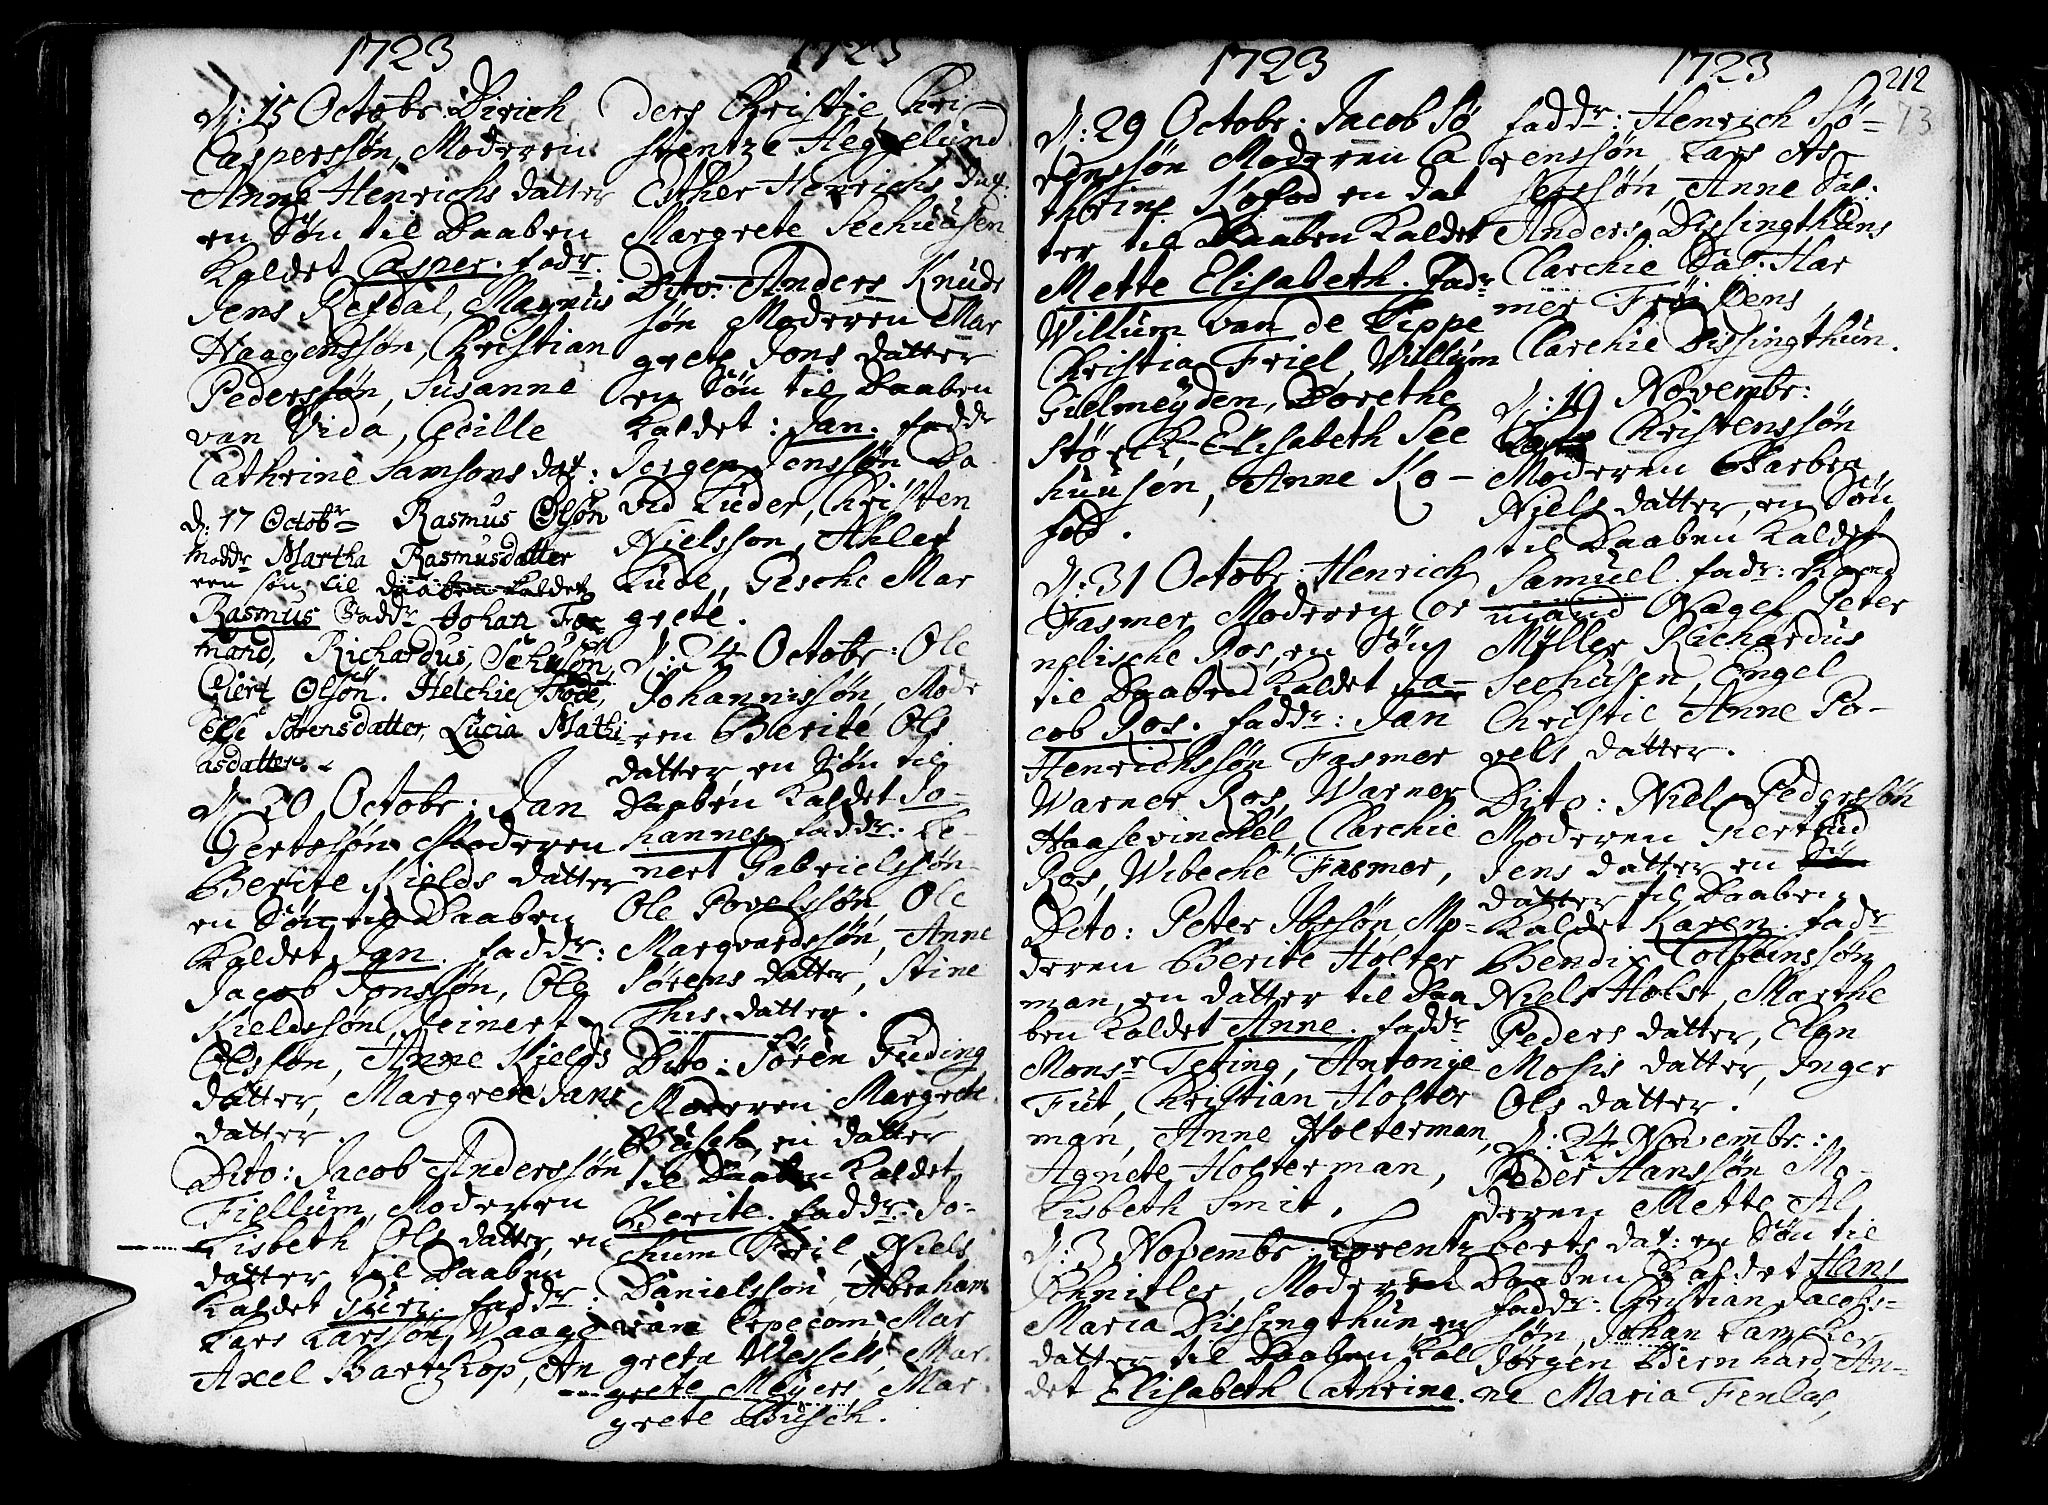 1723
D: 15 Octobr: Dirich
Casperssøn, Moderen
Anne Henrichs datter
en Søn til Daaben
Kaldet Casper. fadr.
Jens Refdal, Magnus
Haagenssøn, Christian
Pederssøn, Susanne
van Vida, Cecille
Cathrine Samsons dat:
D: 17 Octobr Rasmus Olsøn
Modr Martha Rasmusdatter
en søn til daaben kaldet
Rasmus Fadr Johan For
mand, Richardus, Sehusøn,
Giert Olsøn. Helchie Tode,
Else Sørensdatter, Lucia Mathi
asdatter.
D: 20 Octobr: Jan
Gertssøn Moderen
Berite Kields datter
en Søn til Daaben
Kaldet Jan. faddr:
Jacob Jonssøn, Ole
Kieldssøn, Reinert
Olsson, Anne Kields
datter, Margrete Jans
datter.
Dito: Jacob Anderssøn
Fiellum, Moderen
Lisbeth Ols datter, en
datter til Daaben
Kaldet Siiri. faddr:
Lars Larssøn Waage
Axel Bartzkop, An
1723
ders Christie, Chri-
stentze Heggelund
Esther Henrichs dat:
Margrete Seehuusen
Dito: Anders Knuds
søn Moderen Mar
grete Jons datter
en Søn til Daaben
Kaldet: Jan. faddr
Jørgen Jenssøn, Da
vid Luder, Christen
Nielsson, Ahlet
Lude, Gesche Mar
grete.
D: 24 Octobr: Ole
Johannissøn, Mode
ren Berite Ols
datter, en Søn til
Daaben Kaldet Jo-
hannes. faddr: Le-
nert Gabrielssøn
Ole Povelssøn, Ole
Margvardssøn, Anne
Sørens datter, Stine
This datter.
Dito: Søren Guding
Moderen Margrete
Busch, en datter
til Daaben Kaldet
Berite. faddr: Jo-
chum Friil, Niels
Danielsson, Abraham
van Erpecom, Mar
greta Wessels, Mar-
grete Meyers, Mar-
grete Busch.
1723
D: 29 Octobr: Jacob Sø
renssøn Moderen Ca
thrine Kofod en dat
ter til Daaben Kaldet
Mette Elisabeth. fadr
Willum van de Lippe
Christia Friel, Willum
Gielmeyden, Dorethe
Størck, Elisabeth See
huusen, Anne Ko-
fod.
D: 31 Octobr: Henrich
Fasmer Moderen Cor
nelische Ros, en Søn
til Daaben Kaldet Ja-
cob Ros. faddr: Jan
Henrichssøn Fasmer
Warner Ros, Warner
Haasevinchel, Clarchie
Ros, Wibeche Fasmer,
Dito: Peter Ibssøn Mo-
deren Berite Holter
man, en datter til Daa
ben Kaldet Anne. faddr
Monsr Teting, Antonie
Fut, Christian Holter
man, Anne Holterman,
Agnete Holterman,
Lisbeth Smit,
D: 3 Novembr: Lorentz
Schnitler, Moderen
Maria Dissingthun, en
datter til Daaben Kal
det Elisabeth Cathrine.
1723
212
73
faddr: Henrich Sø-
renssøn, Lars As-
serssøn, Anne Sal:
Anders Dissingthuns
Clarchie Sal: Har
mer Frøi Dens,
Clarchie Dissingthun.
D: 19 Novembr:
Christenssøn
Moderen Barbra
Niels datter, en Søn
til Daaben Kaldet
Samuel. fadr: Raad
mand Nagel, Peter
Møller Richardus
Seehusen, Engel
Christie Anne Po-
vels datter.
Dito: Niels Pederssøn
Moderen Giertrud
Jens datter en Søn
datter til Daaben
Kaldet Karen. fadr
Bendix Colbeinssøn
Niels Holst, Marthe
Peders datter, Elen
Mosis datter, Inger
Ols datter.
D: 24 Novembr:
Peder Hanssøn Mo-
deren Mette Al
berts dat: en Søn til
Daaben Kaldet Hans
faddr: Christian Jacobs-
søn, Johan Lamcker
Jørgen Bernhard, An-
ne Maria Fenlas,